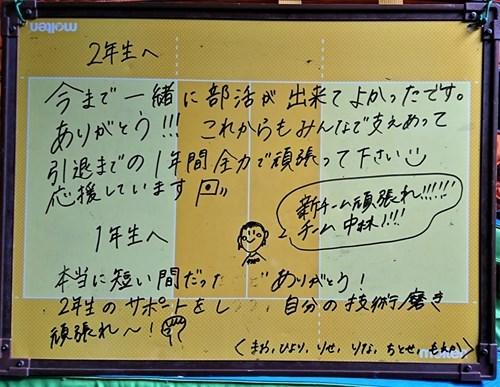 molten
2年生へ
今まで一緒に部活が出来てよかったです。
ありがとう!!! これからもみんなで支えあって
引退までの1年間全力で頑張って下さい
応援しています
新チーム頑張れ!!!!!!
チーム中林!!!!
1年生へ
本当に短い間だった ど ありがとう!
2年生のサポートをし 自分の技術磨き
頑張れ〜!
(まゆ,ひより,りせ,りな,ちとせ,もれか)
molten